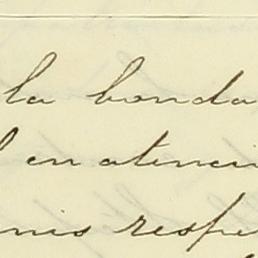 la bonda
en atenci
mis respe